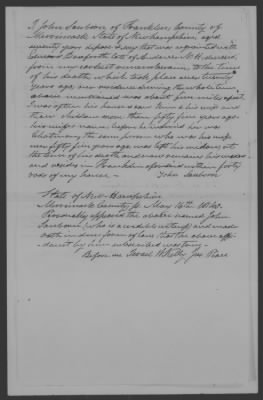 I John Sanborn of Franklin, County of
Merrimack State of New Hampshire, aged
seventy years depose & say that I was acquainted with
Edward Danforth late of Andover N.H. deceased,
from my earliest remembrance, to the time
of his death, which took place over twenty
years ago, our residence during the whole time,
above mentioned was about five miles apart
I was often at his house & saw him & his wife and
their children more than fifty five years ago
his wife's name before
the same person who was his wife
over fifty five years ago was left his widow, at
the time of his death and now remains his widow
and resides in Franklin aforesaid within forty
rods of my house -
John Sanborn
State of New Hampshire
Merrimack County ss May 16th
Personally appeared the above named John
Sanborn, (who is a credible witness) and made
oath in due form of law that the above affi-
davit by him subscribed was true -
Before me Israel W Kelly Jus Peace